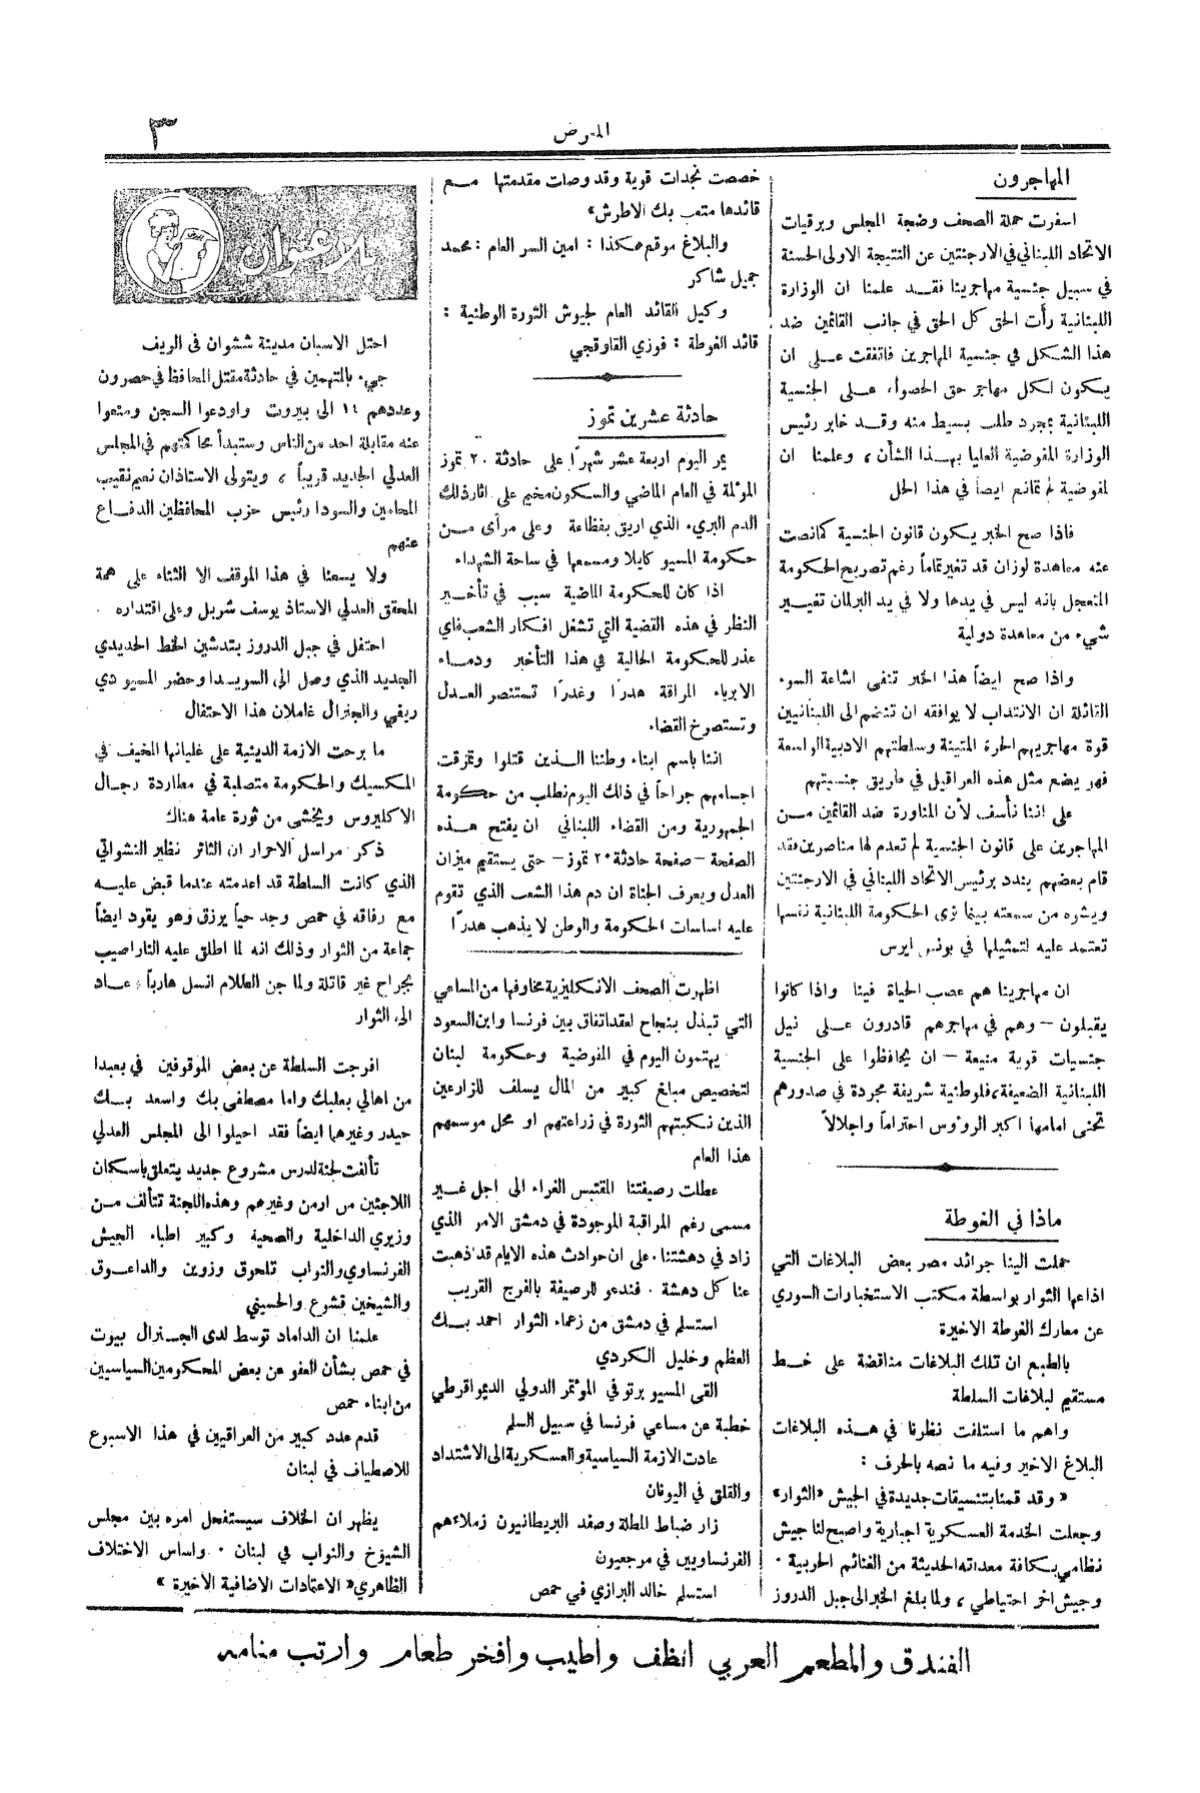 المعرض
٣
المهاجرون
اسفرت حملة الصحف وضجة المجلس وبرقيات
الاتحاد اللبناني في الارجنتين عن النتيجة الاولى الحسنة
في سبيل جنسية مهاجرينا فقـد علمنا ان الوزارة
اللبنانية رأت الحق كل الحق في جانب القائمين ضد
هذا الشكل في جنسية المهاجرين فاتفقت عـلى ان
يكون لكل مهاجر حق الحصول عـلى الجنسية
اللبنانية بمجرد طلب بسيط منه وقـد خابر رئيس
الوزارة المفوضية العليا بهـذا الشأن ، وعلمنا ان
المفوضية لم تمانع ايضاً في هذا الحل
فاذا صح الخبر يـكون قانون الجنسية كما نصت
عنه معاهدة لوزان قد تغير تماماً رغم تصريح الحكومة
المتعجل بانه ليس في يدها ولا في يد البرلمان تغيـير
شيء من معاهدة دولية
واذا صح ايضاً هذا الخبر تنفى اشاعة السوء
القائلة ان الانتداب لا يوافقه ان تنضم الى اللبنانيين
قوة مهاجريهم الحرة المتينة وسلطتهم الادبية الواسعة
فهو يضع مثل هذه العراقيل في طريق جنسيتهم
على اننا نأسف لأن المناورة ضد القائمين مـن
المهاجرين على قانون الجنسية لم تعدم لها مناصرين فقد
قام بعضهم يندد برئيس الاتحاد اللبناني في الارجنتين
ويشوه من سمعته بينما نرى الحكومة اللبنانية نفسها
تعتمد عليه لتمثيلها في بونس ايرس
ان مهاجرينا هم عصب الحياة فينا واذا كانوا
يقبلون – وهم في مهاجرهم قادرون عـلى نيل
جنسيات قوية منيعة – ان يحافظوا على الجنسية
اللبنانية الضعيفة، فلوطنية شريفة مجردة في صدورهم
تحنى امامها اكبر الرؤوس احتراماً واجلالاً
ماذا في الغوطة
حملت الينا جرائد مصر بعض البلاغات التي
اذاعها الثوار بواسطة مكتب الاستخبارات السوري
عن معارك الغوطة الاخيرة
بالطبع ان تلك البلاغات مناقضة على خـط
مستقيم لبلاغات السلطة
واهم ما استلفت نظرنا في هـذه البلاغات
البلاغ الاخير وفيه ما نصه بالحرف :
« وقد قمنا بتنسيقات جديدة في الجيش «الثوار»
وجعلت الخدمة العسكرية اجبارية واصبح لنا جيش
نظامي بكافة معداته الحديثة من الغنائم الحربية .
وجيش اخر احتياطي ، ولما بلغ الخبر الى جبل الدروز
خصصت نجدات قوية وقد وصات مقدمتها مـع
قائدها متعب بك الاطرش»
والبلاغ موقع هكذا : امين السر العام : محمد
جميل شاكر
وكيل القائد العام لجيوش الثورة الوطنية :
قائد الغوطة : فوزي القاوقجي
حادثة عشرين تموز
يمر اليوم اربعة عشر شهراً على حادثة ٢٠ تموز
المؤلمة في العام الماضي والسكون مخيم على اثار ذلك
الدم البريء الذي اريق بفظاعة وعلى مرأى مـن
حكومة المسيو كايلا ومسمعها في ساحة الشهداء
اذا كان للحكومة الماضية سبب في تأخـير
النظر في هذه القضية التي تشغل افكار الشعب فاي
عذر للحكومة الحالية في هذا التأخير ودمـاء
الابرياء المراقة هدراً وغدراً تستنصر العـدل
وتستصرخ القضاء
اننا باسم ابناء وطننا الـذين قتلوا وتمزقت
اجسامهم جراحاً في ذلك اليوم نطلب من حكومة
الجمهورية ومن القضاء اللبناني ان يفتح هـذه
الصفحة – صفحة حادثة ٢٠ تموز – حتى يستقيم ميزان
العدل ويعرف الجناة ان دم هذا الشعب الذي تقوم
عليه اساسات الحكومة والوطن لا يذهب هدراً
اظهرت الصحف الانكليزية مخاوفها من المساعي
التي تبذل بنجاح لعقد اتفاق بين فرنسا وابن السعود
يهتمون اليوم في المفوضية وحكومة لبنان
لتخصيص مبالغ كبير من المال يسلف للزارعين
الذين نكبتهم الثورة في زراعتهم او محل موسمهم
هذا العام
عطلت رصيفتنا المقتبس الغراء الى اجل غـير
مسمى رغم المراقبة الموجودة في دمشق الامر الذي
زاد في دهشتنا. على ان حوادث هذه الايام قد ذهبت
عنا كل دهشة . فندعو للرصيفة بالفرج القريب
استسلم في دمشق من زعماء الثوار احمد بـك
العظم وخليل الكردي
القى المسيو برتو في المؤتمر الدولي الديموقراطي
خطبة عن مساعي فرنسا في سبيل السلم
عادت الازمة السياسية والعسكرية الى الاشتداد
والقلق في اليونان
زار ضباط المطلة وصفد البريطانيون زملاءهم
الفرنساويين في مرجعيون
استسلم خالد البرازي في حمص
بلا عنوان
احتل الاسبان مدينة ششوان في الريف
جيء بالمتهمين في حادثة مقتل المحافظ في حصرون
وعددهم ١٤ الى بيروت واودعوا السجن ومنعوا
عنه مقابلة احد من الناس وستبدأ محاكمتهم في المجلس
العدلي الجديد قريباً ، ويتولى الاستاذان نعيم نقيب
المحامين والسودا رئيس حزب المحافظين الدفـاع
عنهم
ولا يسعنا في هذا الموقف الا الثناء على همة
المحقق العدلي الاستاذ يوسف شربل وعلى اقتداره .
احتفل في جبل الدروز بتدشين الخط الحديدي
الجديد الذي وصل الى السويـدا وحضر المسيو دي
ريفي والجنرال غاملان هذا الاحتفال
ما برحت الازمة الدينية على غليانها المخيف في
المكسيك والحكومة متصلبة في مطاردة رجـال
الاكليروس ويخشى من ثورة عامة هناك
ذكر مراسل الاحرار ان الثائر نظير النشواتي
الذي كانت السلطة قد اعدمته عندما قبض عليـه
مع رفاقه في حمص وجد حياً يرزق وهو يقود ايضاً
جماعة من الثوار وذلك انه لما اطلق عليه النار اصيب
بجراح غير قاتلة ولما جن الظلام انسل هارباً وعـاد
الى الثوار
افرجت السلطة عن بعض الموقوفين في بعبدا
من اهالي بعلبك واما مصطفى بك واسعد بـك
حيدر وغيرهما ايضاً فقد احيلوا الى المجلس العدلي
تألفت لجنة لدرس مشروع جديد يتعلق باسكان
اللاجئين من ارمن وغيرهم وهذه اللجنة تتألف مـن
وزيري الداخلية والصحية وكبير اطباء الجيش
الفرنساوي والنواب تلحوق وزوين والداعـوق
والشيخين قشوع والحسيني
علمنا ان الداماد توسط لدى الجـنرال بيوت
في حمص بشأن العفو عن بعض المحكومين السياسيين
من ابناء حمص
قدم عدد كبير من العراقيين في هذا الاسبوع
للاصطياف في لبنان
يظهر ان الخلاف سيستفحل امره بين مجلس
الشيوخ والنواب في لبنان . واساس الاختلاف
الظاهري « الاعتمادات الاضافية الاخيرة »
الفندق والمطعم العربي انظف واطيب وافخر طعام وارتب منامه